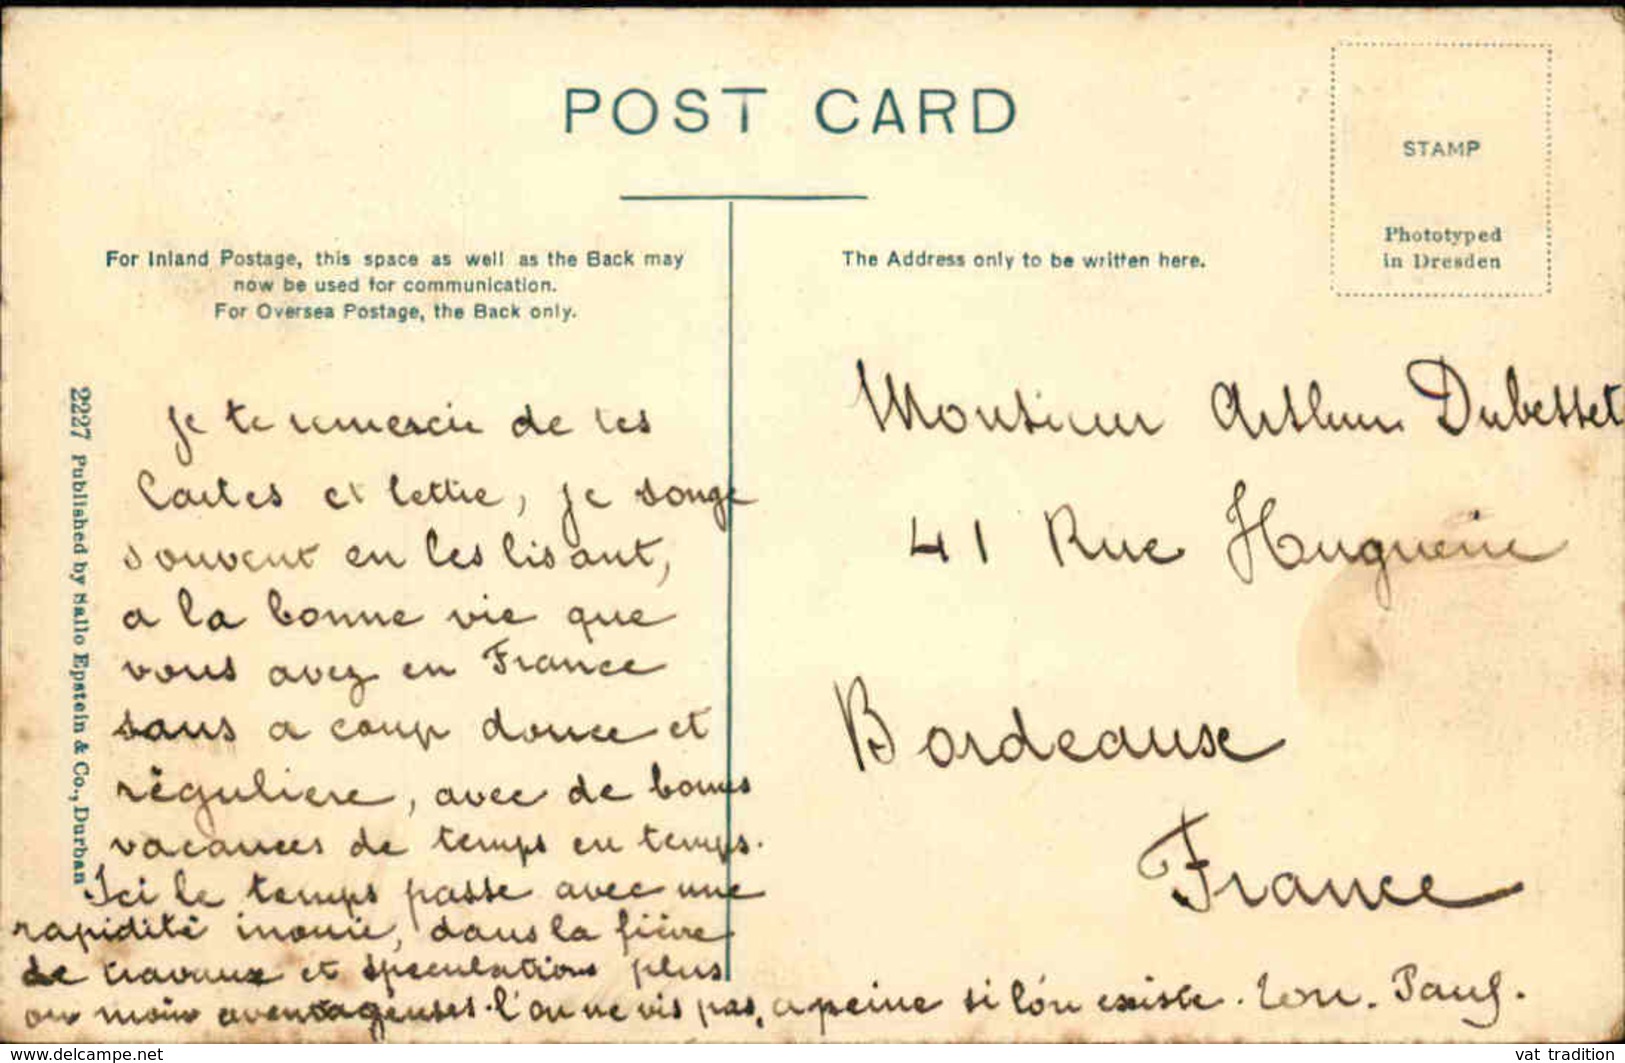 POST CARD
STAMP
Phototyped
in Dresden
For Inland Postage, this space as well as the Back may
now be used for communication.
For Oversea Postage, the Back only.
The Address only to be written here.
2227 Published by Sallo Epstein & Co., Durban
je te remercie de tes
Cartes et lettre, je songe
souvent en les lisant,
a la bonne vie que
vous avez en France
sans a coup douce et
réguliere, avec de bonnes
vacances de temps en temps.
Ici le temps passe avec une
rapidité inouie, dans la fièvre
de travaux et speculations plus
ou moins aventageuses. l'on ne vis pas, a peine si l'on existe. Ton. Paul.
Monsieur Arthur Dubesset
41 Rue Huguerie
Bordeaux
France
www.delcampe.net
vat_tradition